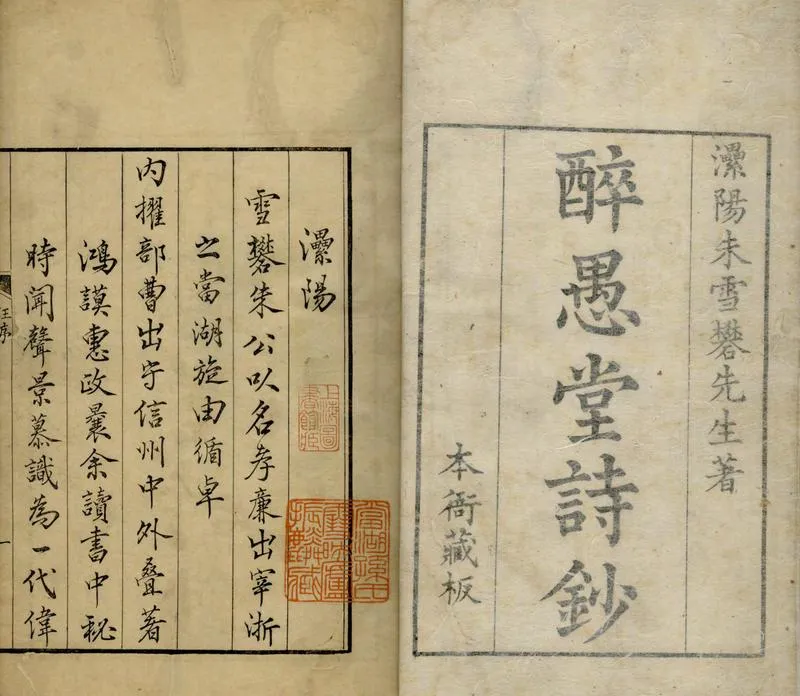 灤陽朱雪礬先生著
醉愚堂詩鈔
本衙藏板
灤陽
雪礬朱公以名孝廉出宰浙
之當湖旋由循卓
內擢部曹出守信州中外疊著
鴻謨惠政曩余讀書中秘
時聞聲景慕識為一代偉
王序
一
上海圖書館藏